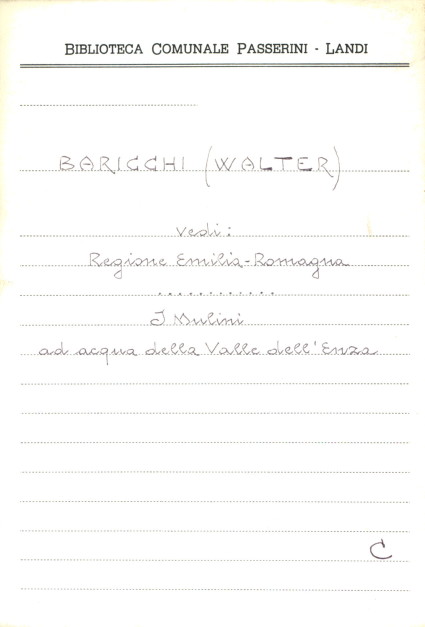 BIBLIOTECA COMUNALE PASSERINI - LANDI
BARICCHI (WALTER)
vedi:
Regione Emilia-Romagna
............
I Mulini
ad acqua della Valle dell'Enza
C